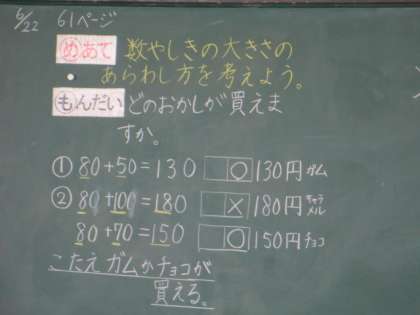 6/22 61ページ
めあて 数やしきの大きさの
あらわし方を考えよう。
もんだい どのおかしが買えま
すか。
① 80+50=130 ○ 130円 ガム
② 80+100=180 × 180円 キャラメル
80+70=150 ○ 150円 チョコ
こたえ ガムかチョコが
買える。